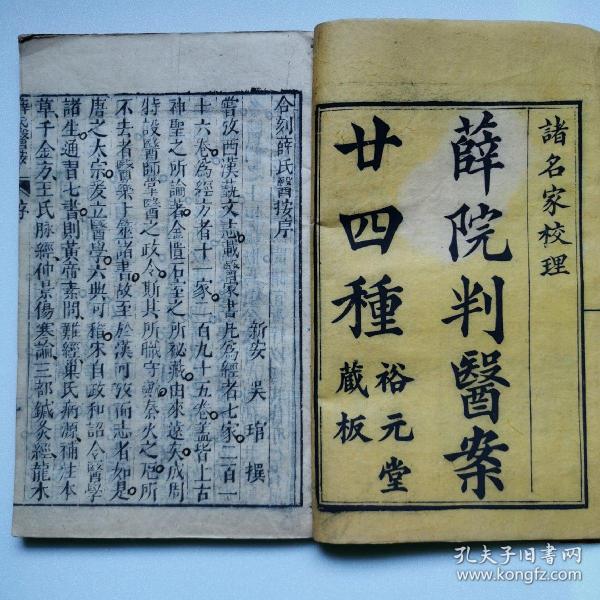 諸名家校理
薛院判醫案
廿四種
裕元堂
藏板
合刻薛氏醫按序
新安 吳琯 撰
嘗攷西漢藝文志載醫家書凡為經者七家二百一
十六卷為經方者十一家二百九十五卷蓋皆上古
神聖之所論著金匱石室之所祕藏由來遠矣成周
特設醫師掌醫之政令斯其所職守
不去者醫藥卜筮諸書故至於漢可攷而志者如是
唐之太宗爰立醫學六典可稽宋自政和詔令醫學
諸生通習七書則黃帝素問難經巢氏病源補注本
草千金方王氏脉經仲景傷寒論三部鍼灸經龍木
薛氏醫按 序
孔夫子旧书网
www.kongfz.com